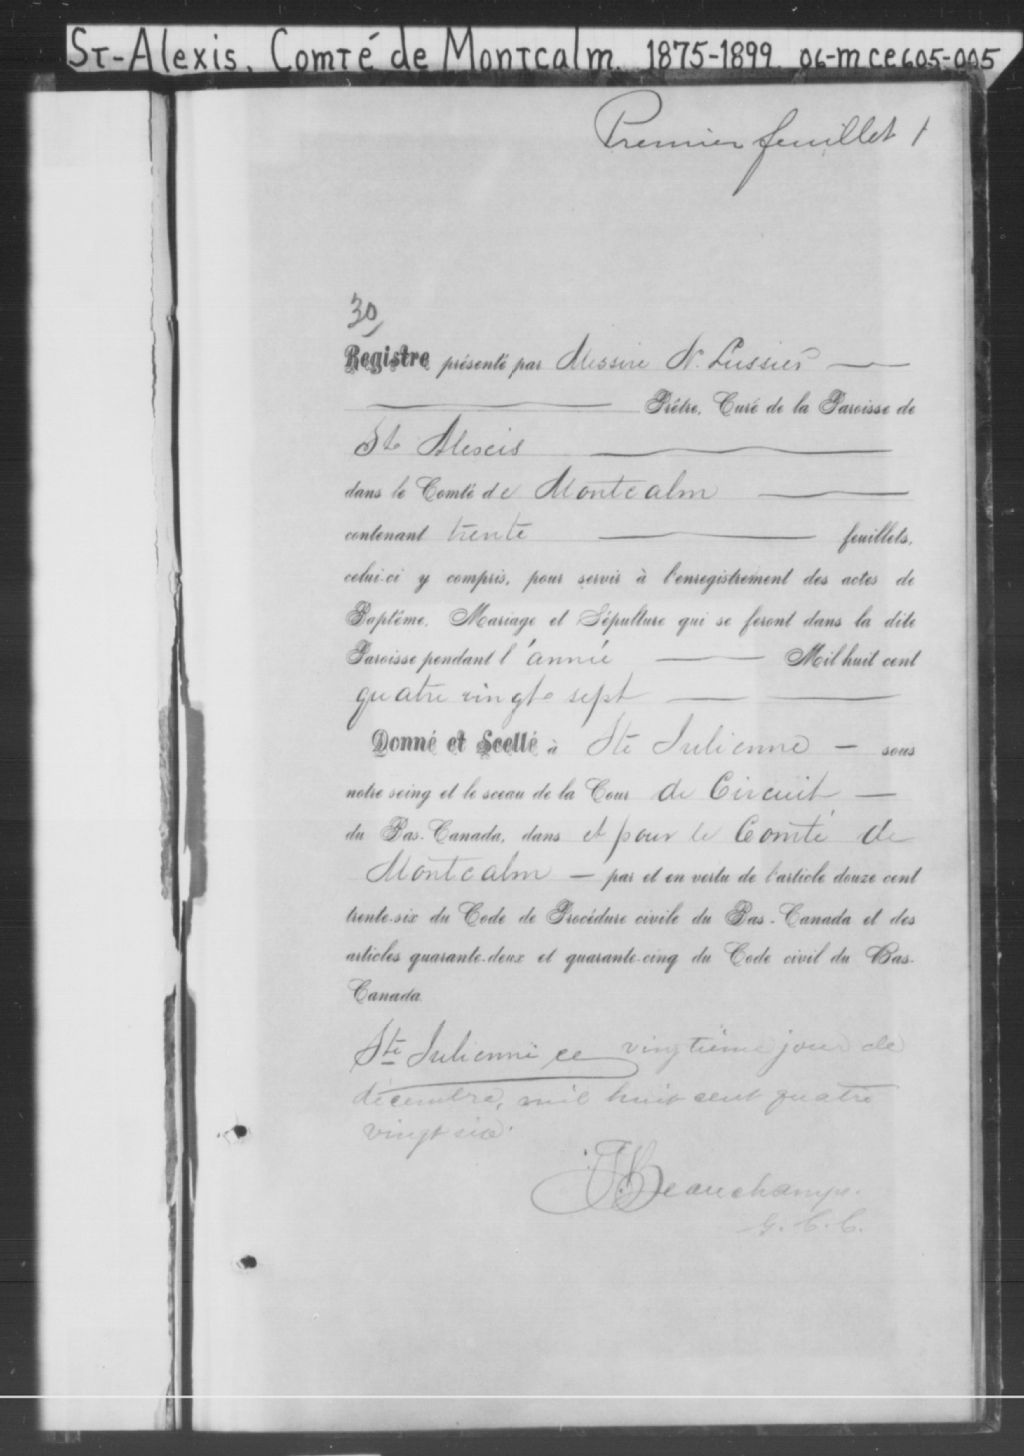 St-Alexis. Comté de Montcalm. 1875-1899. 06-mce605-005
Premier feuillet 1
30
Registre présenté par Messire N. Lussier
Prêtre, Curé de la Paroisse de
St Alexis
dans le Comté de Montcalm
contenant trente feuillets,
celui-ci y compris, pour servir à l'enregistrement des actes de
Baptême, Mariage et Sépulture qui se feront dans la dite
Paroisse pendant l'année Mil huit cent
quatre vingt sept
Donné et Scellé à Ste Julienne — sous
notre seing et le sceau de la Cour de Circuit —
du Bas-Canada, dans et pour le Comté de
Montcalm — par et en vertu de l'article douze cent
trente-six du Code de Procédure civile du Bas-Canada et des
articles quarante-deux et quarante-cinq du Code civil du Bas-
Canada.
Ste Julienne ce vingtième jour de
décembre, mil huit cent quatre
vingt six.
Beauchamp.
G. C. C.